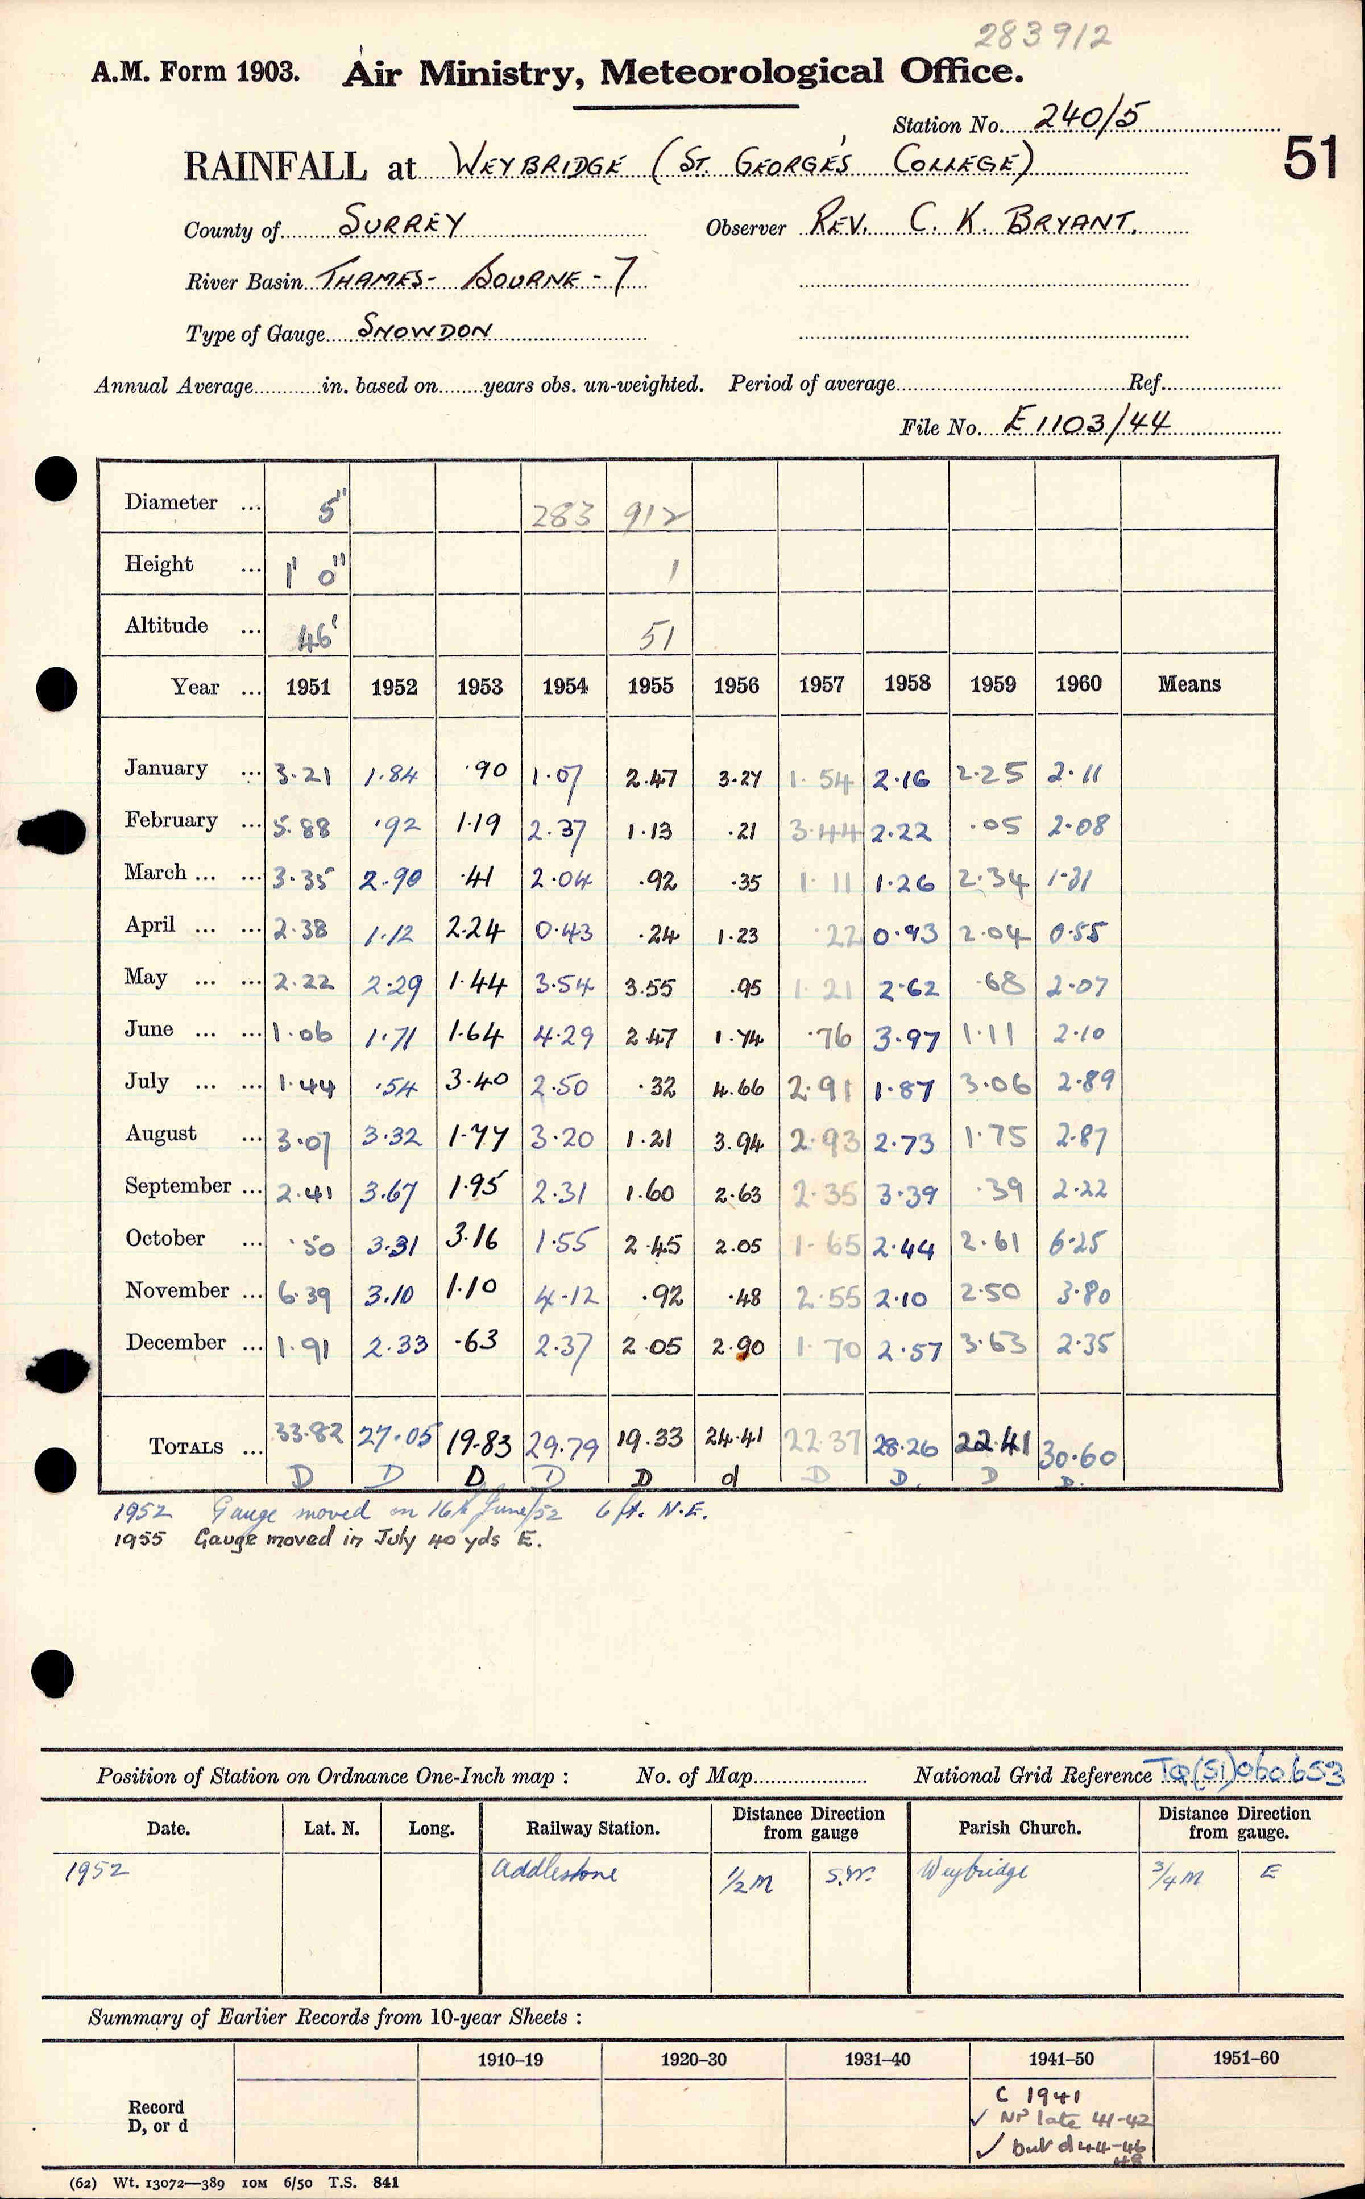 283912
A.M. Form 1903. Air Ministry, Meteorological Office.
Station No. 240/5
51
RAINFALL at WEYBRIDGE (ST. GEORGE'S COLLEGE)
County of SURREY Observer REV. C. K. BRYANT.
River Basin THAMES - BOURNE - 7
Type of Gauge SNOWDON
Annual Average in. based on years obs. un-weighted. Period of average Ref.
File No. E 1103/44
Diameter ... 5" 283 912
Height ... 1' 0" 1
Altitude ... 46' 51
Year ... 1951 1952 1953 1954 1955 1956 1957 1958 1959 1960 Means
January ... 3.21 1.84 .90 1.07 2.47 3.27 1.54 2.16 2.25 2.11
February ... 5.88 .92 1.19 2.37 1.13 .21 3.44 2.22 .05 2.08
March ... ... 3.35 2.90 .41 2.04 .92 .35 1.11 1.26 2.34 1.31
April ... ... 2.38 1.12 2.24 0.43 .24 1.23 .22 0.93 2.04 0.55
May ... ... 2.22 2.29 1.44 3.54 3.55 .95 1.21 2.62 .68 2.07
June ... ... 1.06 1.71 1.64 4.29 2.47 1.74 .76 3.97 1.11 2.10
July ... ... 1.44 .54 3.40 2.50 .32 4.66 2.91 1.87 3.06 2.89
August ... 3.07 3.32 1.77 3.20 1.21 3.94 2.93 2.73 1.75 2.87
September ... 2.41 3.67 1.95 2.31 1.60 2.63 2.35 3.39 .39 2.22
October ... .50 3.31 3.16 1.55 2.45 2.05 1.65 2.44 2.61 6.25
November ... 6.39 3.10 1.10 4.12 .92 .48 2.55 2.10 2.50 3.80
December ... 1.91 2.33 .63 2.37 2.05 2.90 1.70 2.57 3.63 2.35
TOTALS ... 33.82 27.05 19.83 29.79 19.33 24.41 22.37 28.26 22.41 30.60
D D D D D d D D. D D.
1952 Gauge moved on 16th June/52 6 ft. N.E.
1955 Gauge moved in July 40 yds E.
Position of Station on Ordnance One-Inch map : No. of Map National Grid Reference TQ(51)060653
Date. Lat. N. Long. Railway Station. Distance Direction from gauge Parish Church. Distance Direction from gauge.
1952 Addlestone 1/2 M S.W. Weybridge 3/4 M E
Summary of Earlier Records from 10-year Sheets :
1910–19 1920–30 1931–40 1941–50 1951–60
Record D, or d
C 1941
✓ NP late 41-42
✓ but d 44-46
48
(62) Wt. 13072—389 10M 6/50 T.S. 841